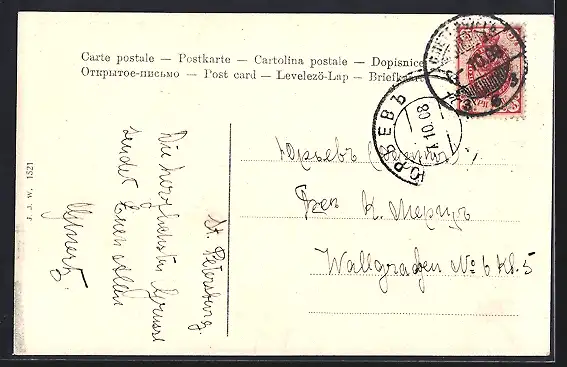 Carte postale — Postkarte — Cartolina postale — Dopisnice
Открытое-письмо — Post card — Levelező-Lap — Briefkaart
J. J. W. 1521
St. Petersburg.
Die herzlichsten Grüsse
sendet Euch Allen
ЮРЬЕВЪ
7.10.08
Юрьевъ
К. Мерцъ
Wallgraben No 6 Kl. 5